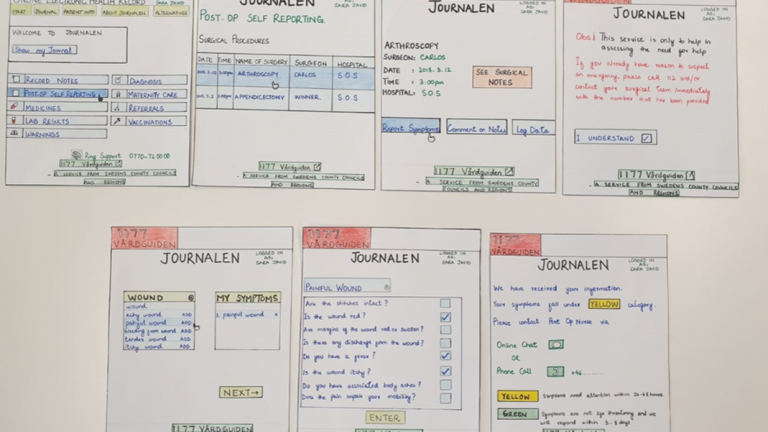 ONLINE ELECTRONIC HEALTH RECORD
SARA JAMD
START
JOURNAL
PATIENT INFO
ABOUT JOURNALEN
ALTERNATIVES
WELCOME TO JOURNALEN
Show my Journal
RECORD NOTES
DIAGNOSIS
POST-OP SELF REPORTING
MATERNITY CARE
MEDICINES
REFERRALS
LAB RESULTS
VACCINATIONS
WARNINGS
Ring Support 0770-72 00 00
1177 Vårdguiden
A SERVICE FROM SWEDENS COUNTY COUNCILS
AND REGIONS
JOURNALEN
SARA JAMD
POST-OP SELF REPORTING
SURGICAL PROCEDURES
DATE TIME NAME OF SURGERY SURGEON HOSPITAL
3.00pm ARTHROSCOPY CARLOS S.O.S
APPENDICECTOMY WINNER S.O.S
1177 Vårdguiden
A SERVICE FROM SWEDENS COUNTY COUNCILS
AND REGIONS
JOURNALEN
SARA JAMD
ARTHROSCOPY
SURGEON: CARLOS
DATE : 2018.3.12
TIME : 3.00pm
HOSPITAL: S.O.S
SEE SURGICAL
NOTES
Report Symptoms
Comment on Notes
Log Data
1177 Vårdguiden
A SERVICE FROM SWEDENS COUNTY
COUNCILS AND REGIONS
JOURNALEN
SARA JAMD
Obs! This service is only to help in
assessing the need for help
If you already have reason to suspect
an emergency, please call 112 and/or
contact your surgical team immediately
with the number that has been provided
I UNDERSTAND
1177 Vårdguiden
A SERVICE FROM SWEDENS COUNTY COUNCILS
AND REGIONS
1177
VÅRDGUIDEN
JOURNALEN
LOGGED IN
AS:
SARA JAMD
WOUND
MY SYMPTOMS
wound
achy wound ADD
painful wound ADD
wound ADD
tender wound ADD
itchy wound ADD
painful wound
NEXT→
1177 VÅRDGUIDEN
1177
VÅRDGUIDEN
JOURNALEN
LOGGED IN
AS:
SARA JAMD
PAINFUL WOUND
Are the stitches intact?
Is the wound red?
Are margins of the wound red or swollen?
Is there any discharge from the wound?
Do you have a fever?
Is the wound itchy?
Do you have associated body aches?
Does the pain impair your mobility?
ENTER
1177
VÅRDGUIDEN
JOURNALEN
LOGGED IN
AS:
SARA JAMD
We have received your information.
Your symptoms fall under YELLOW category.
Please contact Post Op Nurse via
Online Chat
OR
Phone Call +46........
YELLOW Symptoms need attention within 24-48 hours
GREEN Symptoms are not life threatening and we
will respond within 3-5 days